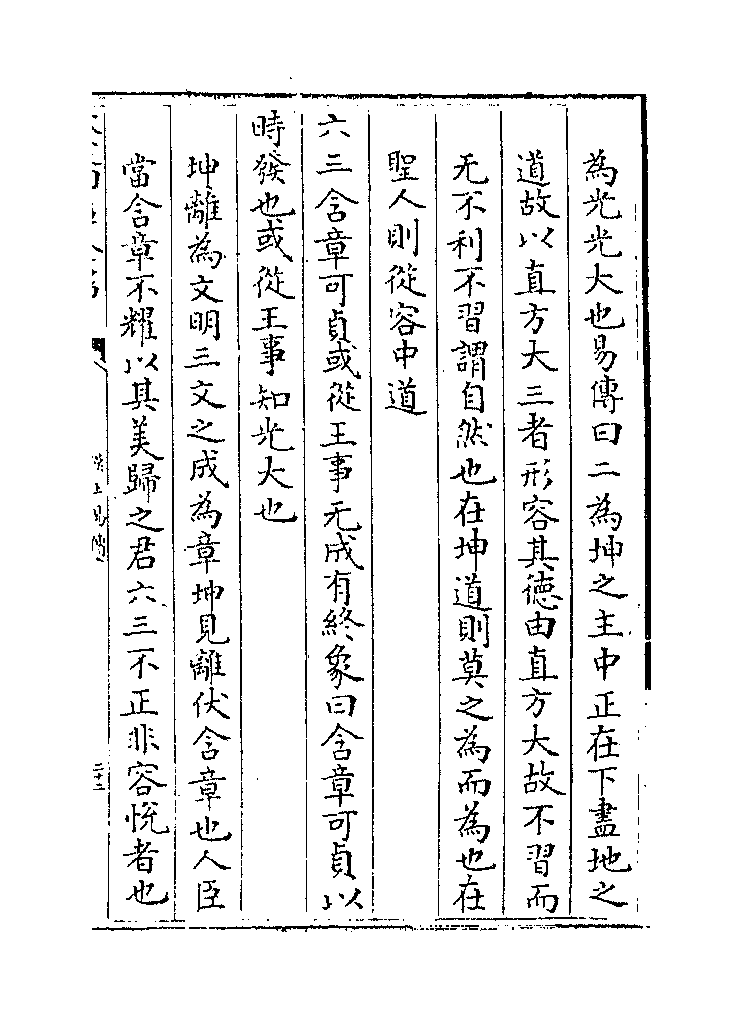 為光光大也易傳曰二為坤之主中正在下盡地之
道故以直方大三者形容其德由直方大故不習而
无不利不習謂自然也在坤道則莫之為而為也在
聖人則從容中道
六三含章可貞或從王事无成有終象曰含章可貞以
時發也或從王事知光大也
坤離為文明三文之成為章坤見離伏含章也人臣
當含章不耀以其美歸之君六三不正非容悅者也
漢上易傳